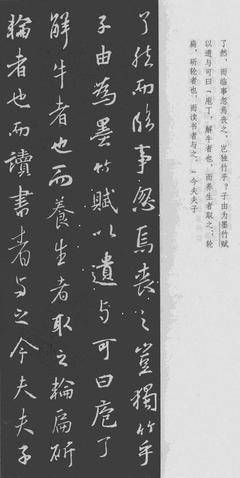 了然，而临事忽焉丧之，岂独竹乎？子由为墨竹赋
以遗与可曰：“庖丁，解牛者也，而养生者取之；轮
扁，斫轮者也，而读书者与之。”今夫夫子
了然而臨事忽焉喪之豈獨竹乎
子由為墨竹賦以遺与可曰庖丁
解牛者也而養生者取之輪扁斫
輪者也而讀書者与之今夫夫子